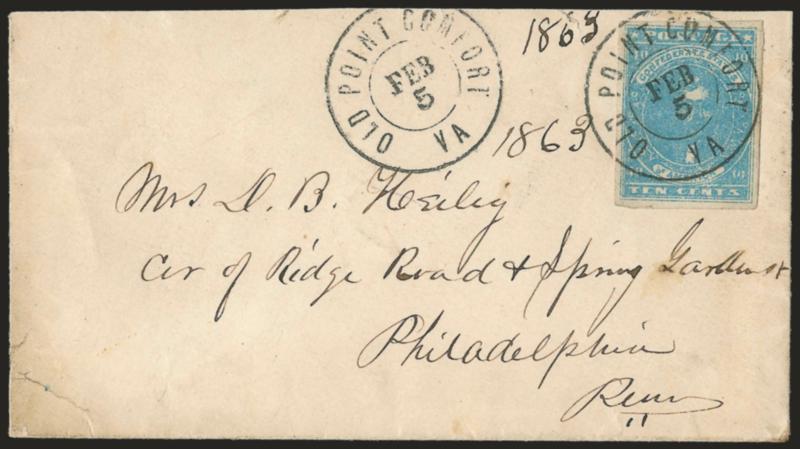 OLD POINT COMFORT VA
FEB
5
1863
OLD POINT COMFORT VA
FEB
5
POSTAGE
TEN CENTS
1863
Mrs D. B. Heilig
Cor of Ridge Road & Spring Garden st
Philadelphia
Penn